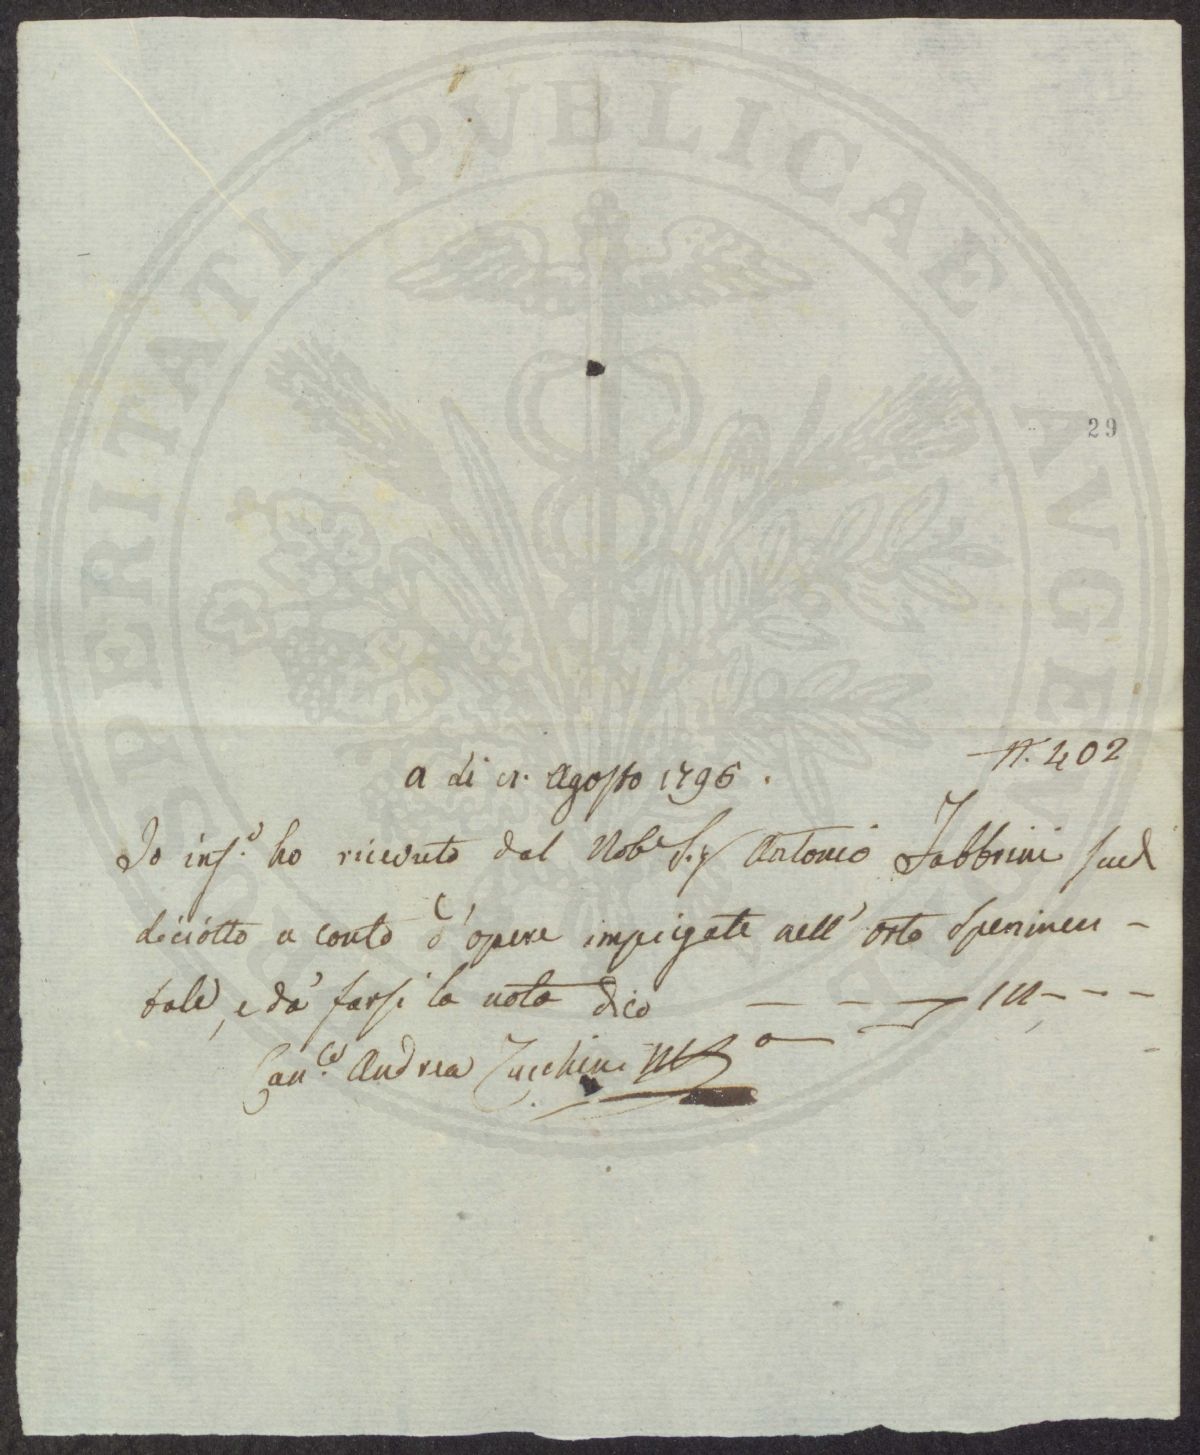 PROSPERITATI PVBLICAE AVGENDAE
29
N. 402
a di Agosto 1796.
Io inf.o ho ricevuto dal Nob.e Sig. Antonio Fabbrini scudi
diciotto a conto d'opere impiegate nell'Orto Sperimen-
tale, e da farsi la nota dico — — —
Can.co Andrea Zucchini